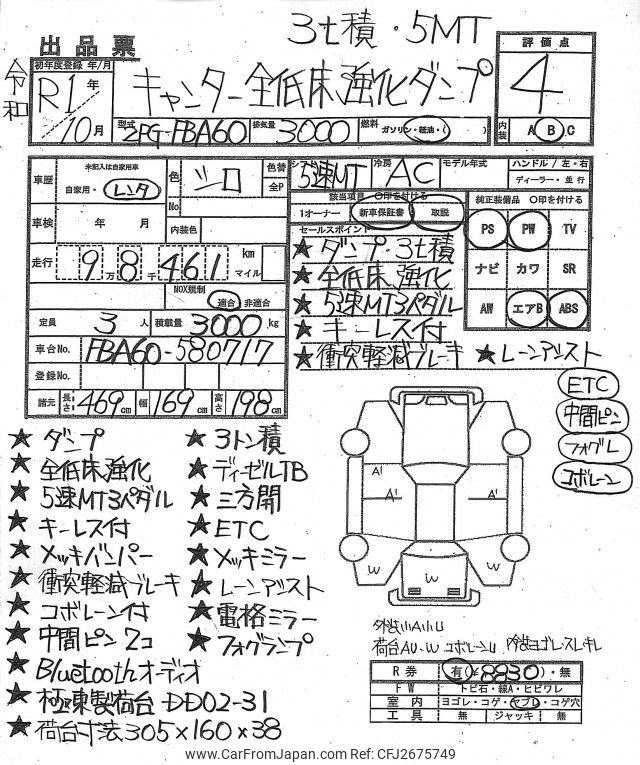 3t積・5MT
出品票
初年度登録 年/月
評価点
令和
R1年
10月
キャンター全低床強化ダンプ
4
型式 2PG-FBA60 排気量 3000 燃料 ガソリン・軽油・( )
内装 A B C
車歴 未記入は自家用車
自家用・レンタ
色 シロ 色替
No. 全P
シフト 5速MT 冷房 AC モデル年式
ハンドル / 左・右
ディーラー・並行
該当項目 〇印を付ける
1オーナー 新車保証書 取説
純正装備品 〇印を付ける
PS PW TV
ナビ カワ SR
AW エアB ABS
車検 年 月 内装色
走行 9万8千461 km マイル
NOX規制
適合・非適合
定員 3人 積載量 3000kg
車台No. FBA60-580717
登録No.
諸元 長さ 469cm 幅 169cm 高さ 198cm
セールスポイント
★ ダンプ 3t積
★ 全低床強化
★ 5速MT3ペダル
★ キーレス付
★ 衝突軽減ブレーキ ★ レーンアシスト
ETC
中間ピン
フォグL
コボレーン
★ ダンプ
★ 全低床強化
★ 5速MT3ペダル
★ キーレス付
★ メッキバンパー
★ 衝突軽減ブレーキ
★ コボレーン付
★ 中間ピン2コ
★ Bluetoothオーディオ
★ 極東製荷台 DD02-31
★ 荷台寸法305×160×38
★ 3トン積
★ ディーゼルTB
★ 三方開
★ ETC
★ メッキミラー
★ レーンアシスト
★ 電格ミラー
★ フォグランプ
A'
A'
A'
W
W
W
荷台AU・W コボレーンU
R券 有(¥8830)・無
FW トビ石・線A・ヒビワレ
室内 ヨゴレ・コゲ・ヤブレ・コゲ穴
工具 無 ジャッキ 無
www.CarFromJapan.com Ref: CFJ2675749